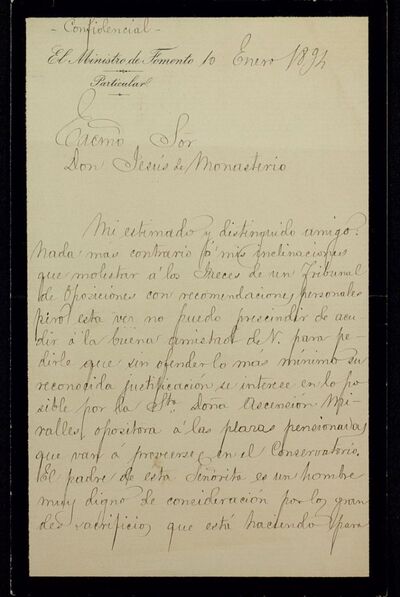 - Confidencial -
El Ministro de Fomento 10 Enero 1894
Particular
Excmo Sór
Don Jesús de Monasterio
Mi estimado y distinguido amigo:
Nada mas contrario á mis inclinaciones
que molestar á los Jueces de un Tribunal
de Oposiciones con recomendaciones personales
pero esta vez no puedo prescindir de acu
dir á la buena amistad de V. para pe
dirle que sin ofender lo más mínimo su
reconocida justificación se interese en lo po
sible por la Srta. Doña Ascensión Mi
ralles, opositora á las plazas pensionadas
que van á proveerse en el Conservatorio.
El padre de esta Señorita es un hombre
muy digno de consideración por los gran
des sacrificios que está haciendo para